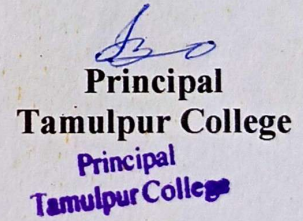 Principal
Tamulpur College
Principal
Tamulpur College